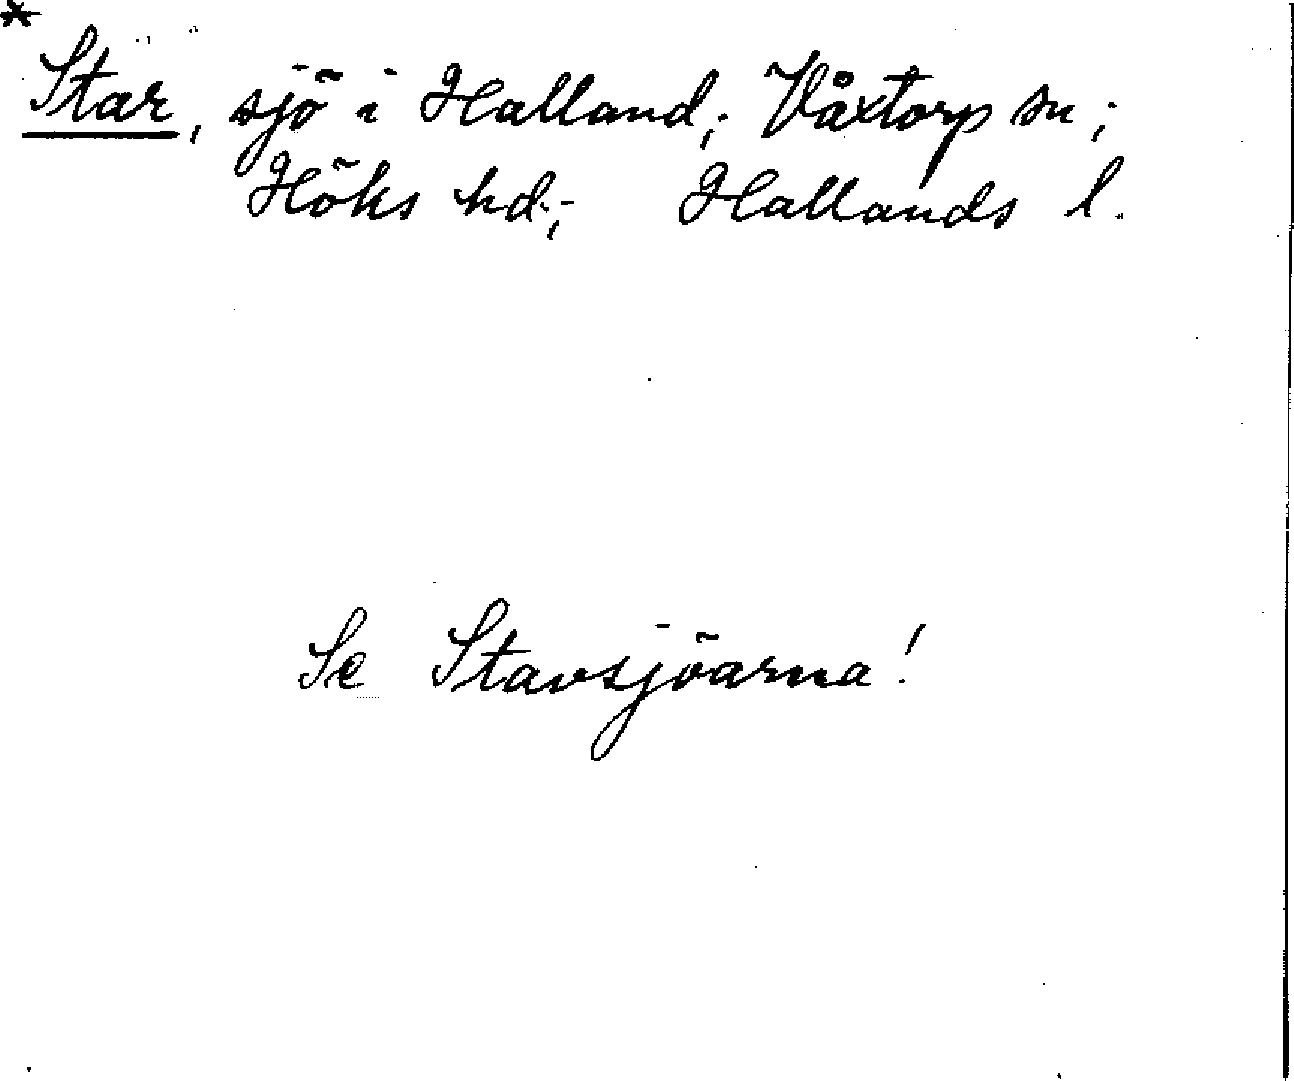 *
Star, sjö i Halland; Våxtorp sn;
Höks hd.; Hallands l.
Se Stavsjöarna!